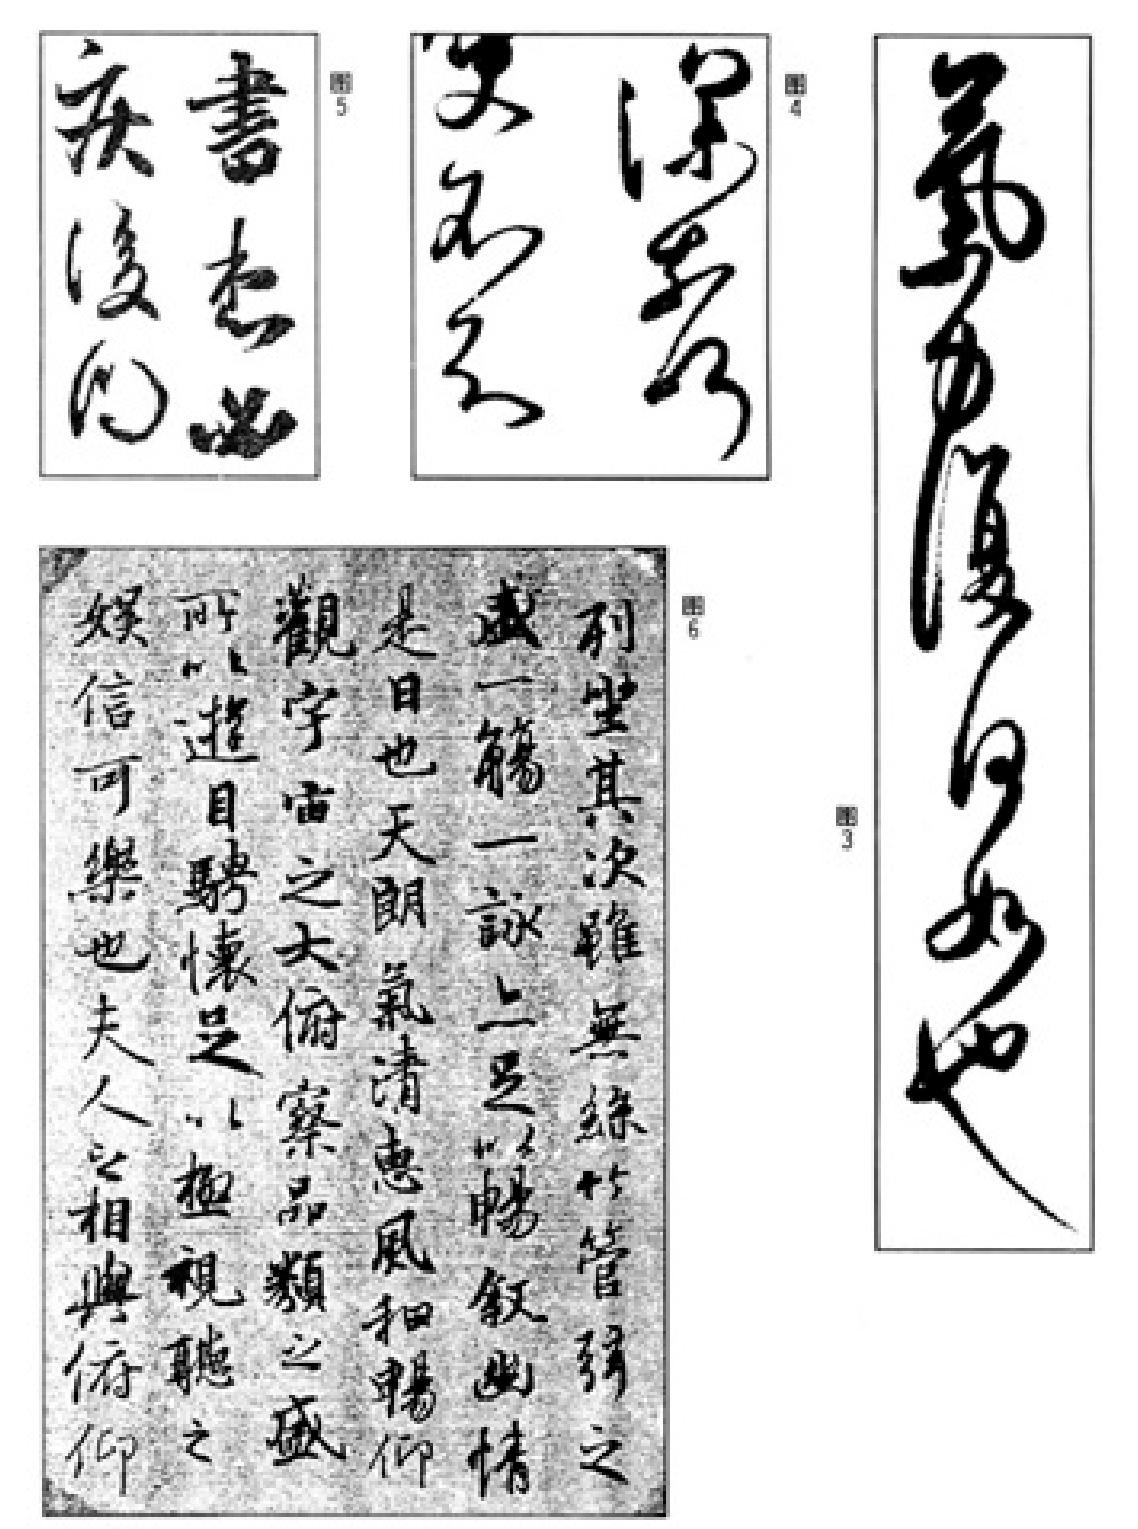 图3
氣力復何如也
图4
深
图5
書想必
疾
图6
列坐其次雖無絲竹管弦之
盛一觴一詠亦足以暢敘幽情
是日也天朗氣清惠風和暢仰
觀宇宙之大俯察品類之盛
所以遊目騁懷足以極視聽之
娛信可樂也夫人之相與俯仰